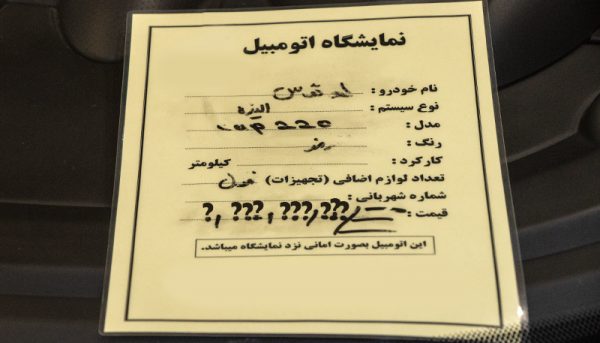 نمایشگاه اتومبیل
نام خودرو : لوتوس
نوع سیستم : الیزه
مدل : cup 220
رنگ :
کارکرد : کیلومتر
تعداد لوازم اضافی (تجهیزات) فول
شماره شهربانی :
قیمت : ?, ???, ???, ???
این اتومبیل بصورت امانی نزد نمایشگاه میباشد.